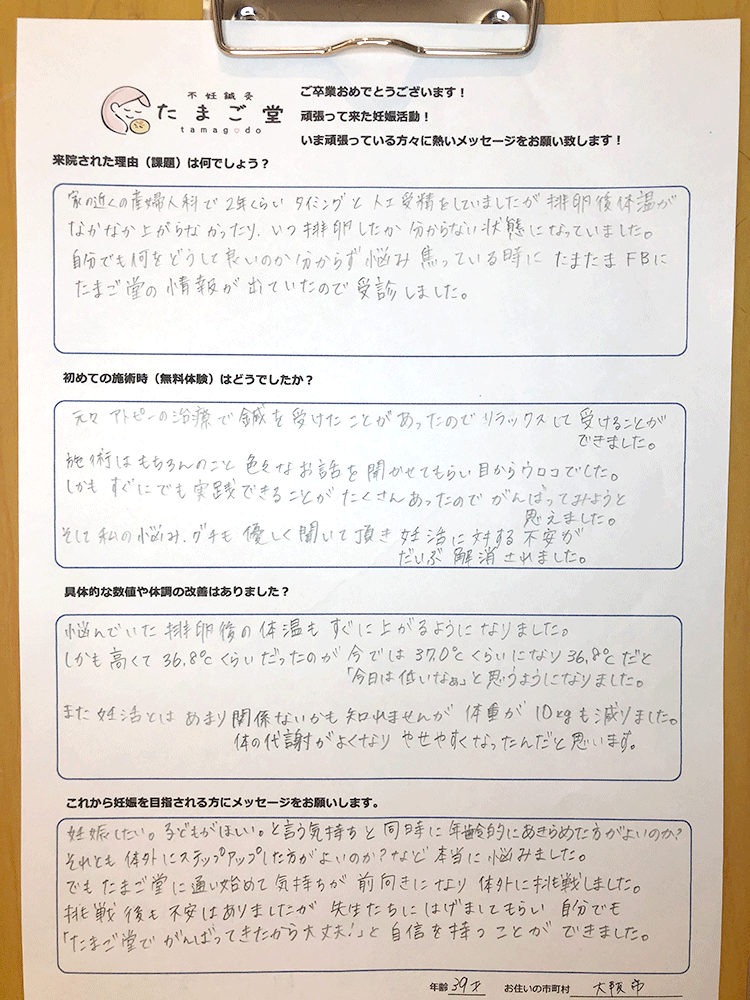 不妊鍼灸
たまご堂
tamagodo
ご卒業おめでとうございます！
頑張って来た妊娠活動！
いま頑張っている方々に熱いメッセージをお願い致します！
来院された理由（課題）は何でしょう？
家の近くの産婦人科で2年くらい タイミングと人工受精をしていましたが 排卵後体温が
なかなか上がらなかったり、いつ排卵したか 分からない状態になっていました。
自分でも何をどうして良いのか分からず悩み 焦っている時に たまたま FBに
たまご堂の情報が出ていたので受診しました。
初めての施術時（無料体験）はどうでしたか？
元々 アトピーの治療で鍼を受けたことがあったのでリラックスして受けることが
できました。
施術はもちろんのこと 色々なお話を聞かせてもらい目からウロコでした。
しかも すぐにでも実践できることが たくさんあったので がんばってみようと
思えました。
そして私の悩み、グチも優しく聞いて頂き 妊活に対する不安が
だいぶ解消されました。
具体的な数値や体調の改善はありました？
悩んでいた排卵後の体温もすぐに上がるようになりました。
しかも高くて36,8℃くらいだったのが今では37,0℃くらいになり36,8℃だと
「今日は低いなぁ」と思うようになりました。
また妊活とはあまり関係ないかも知れませんが 体重が10kgも減りました。
体の代謝がよくなり やせやすくなったんだと思います。
これから妊娠を目指される方にメッセージをお願いします。
妊娠したい。子どもがほしい。と言う気持ちと同時に年齢的にあきらめた方がよいのか?
それとも 体外にステップアップした方がよいのか?など本当に悩みました。
でも たまご堂に通い始めて気持ちが前向きになり 体外に挑戦しました。
挑戦後も不安はありましたが 先生たちにはげましてもらい 自分でも
「たまご堂でがんばってきたから大丈夫!」と自信を持つことができました。
年齢 39才 お住いの市町村 大阪市